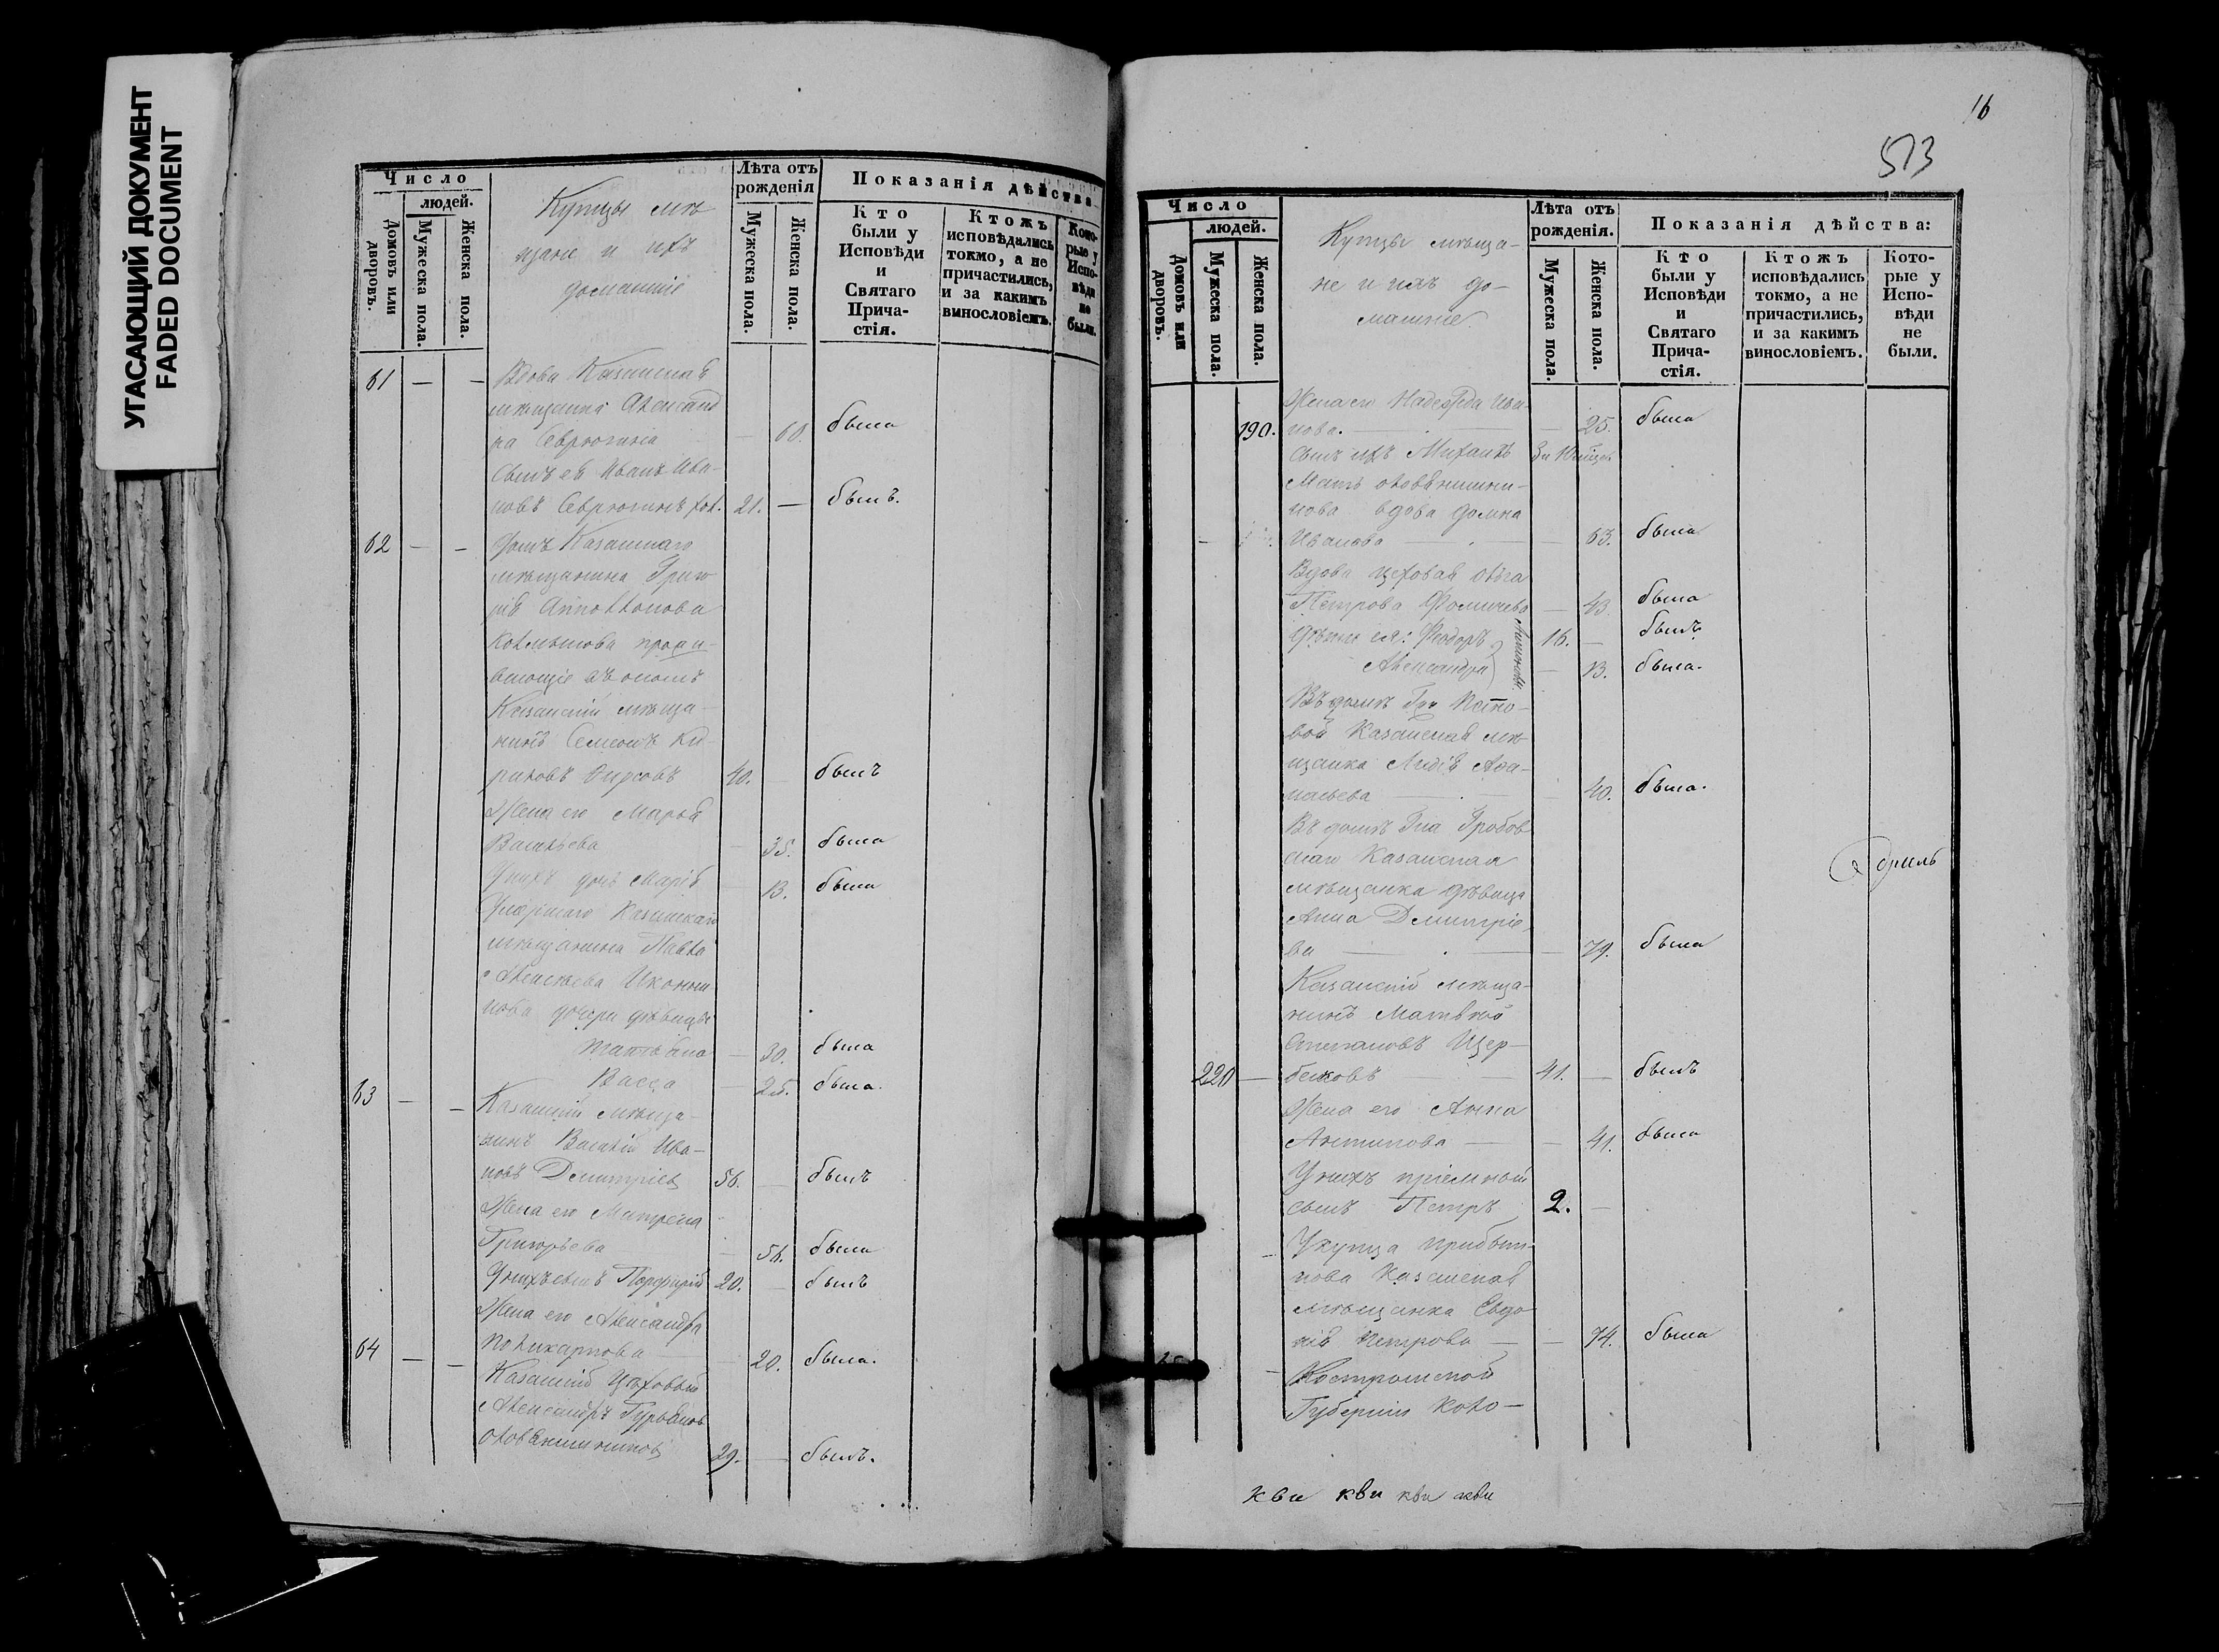 УГАСАЮЩИЙ ДОКУМЕНТ
FADED DOCUMENT
Число
людей.
Домовъ или дворовъ.
Мужеска пола.
Женска пола.
Купцы мѣ
щане и ихъ
домашніе
Лѣта отъ
рожденія
Мужеска пола.
Женска пола.
Показанія дѣйства
Кто
были у
Исповѣди
и
Святаго
Прича-
стія.
Ктожъ
исповѣдались
токмо, а не
причастились,
и за какимъ
винословіемъ.
Кото-
рые у
Испо-
вѣди
не
были.
61 — — Вдова Казанская
мѣщанка Александ
ра Севрюгина — 60. была
Сынъ ея Иванъ Ива-
новъ Севрюгинъ хол. 21. — былъ.
62 — — Домъ Казанскаго
мѣщанина Григо
рія Аполлонова
прожи-
вающіе въ ономъ
Казанскій мѣща-
нинъ Семенъ Ки
риловъ Фирсовъ 40. былъ
Жена его Марья
Васильева — 35. была
Унихъ дочь Марія — 13. была
Умершаго Казанскаго
мѣщанина Павла
Алексѣева Иконни
кова дочери дѣвицы
Татьяна — 30. была
Васса — 25. была.
63 — — Казанскій мѣща-
нинъ Василій Ива-
новъ Дмитріев 56. — былъ
Жена его Матрена
Григорьева — 56. была
Унихъ сынъ Порфирій 20. — былъ
Жена его Александра
Поликарпова — 20. была.
64 — — Казанскій Цѣховый
Александръ Гурьяновъ
Оловянишниковъ 29. — былъ.
16
513
Число
людей.
Домовъ или дворовъ.
Мужеска пола.
Женска пола.
Купцы мѣща-
не и ихъ до-
машніе
Лѣта отъ
рожденія.
Мужеска пола.
Женска пола.
Показанія дѣйства:
Кто
были у
Исповѣди
и
Святаго
Прича-
стія.
Ктожъ
исповѣдались
токмо, а не
причастились,
и за какимъ
винословіемъ.
Кото-
рые у
Испо-
вѣди
не
были.
Жена его Надежда Ива-
190. нова. — — 25. была
Сынъ ихъ Михаилъ
Мать Оловянишни-
кова вдова Домна
Иванова — — 63. была
Вдова цеховая Ольга
Петрова Фомичева — 43. была
Дѣти ея: Феодоръ 16. — былъ
Александра — 13. была.
Въ домѣ Гжи Попо-
вой Казанская мѣ
щанка Лидія Афа-
насьева — — 40. была.
Въ домѣ Гна Гробов
скаго Казанская
мѣщанка дѣвица
Анна Дмитріе-
ва — — 79. была
Казанскій мѣща-
нинъ Матвѣй
Степановъ Щер-
220 — баковъ 41. — былъ
Жена его Анна
Антипова — — 41. была
Унихъ пріемный
сынъ Петръ 2. —
Укупца Прибыт-
кова Казанская
мѣщанка Евдо
кія Петрова — — 74. была
Костромской
Губерніи Коло-
кви кви кви кви